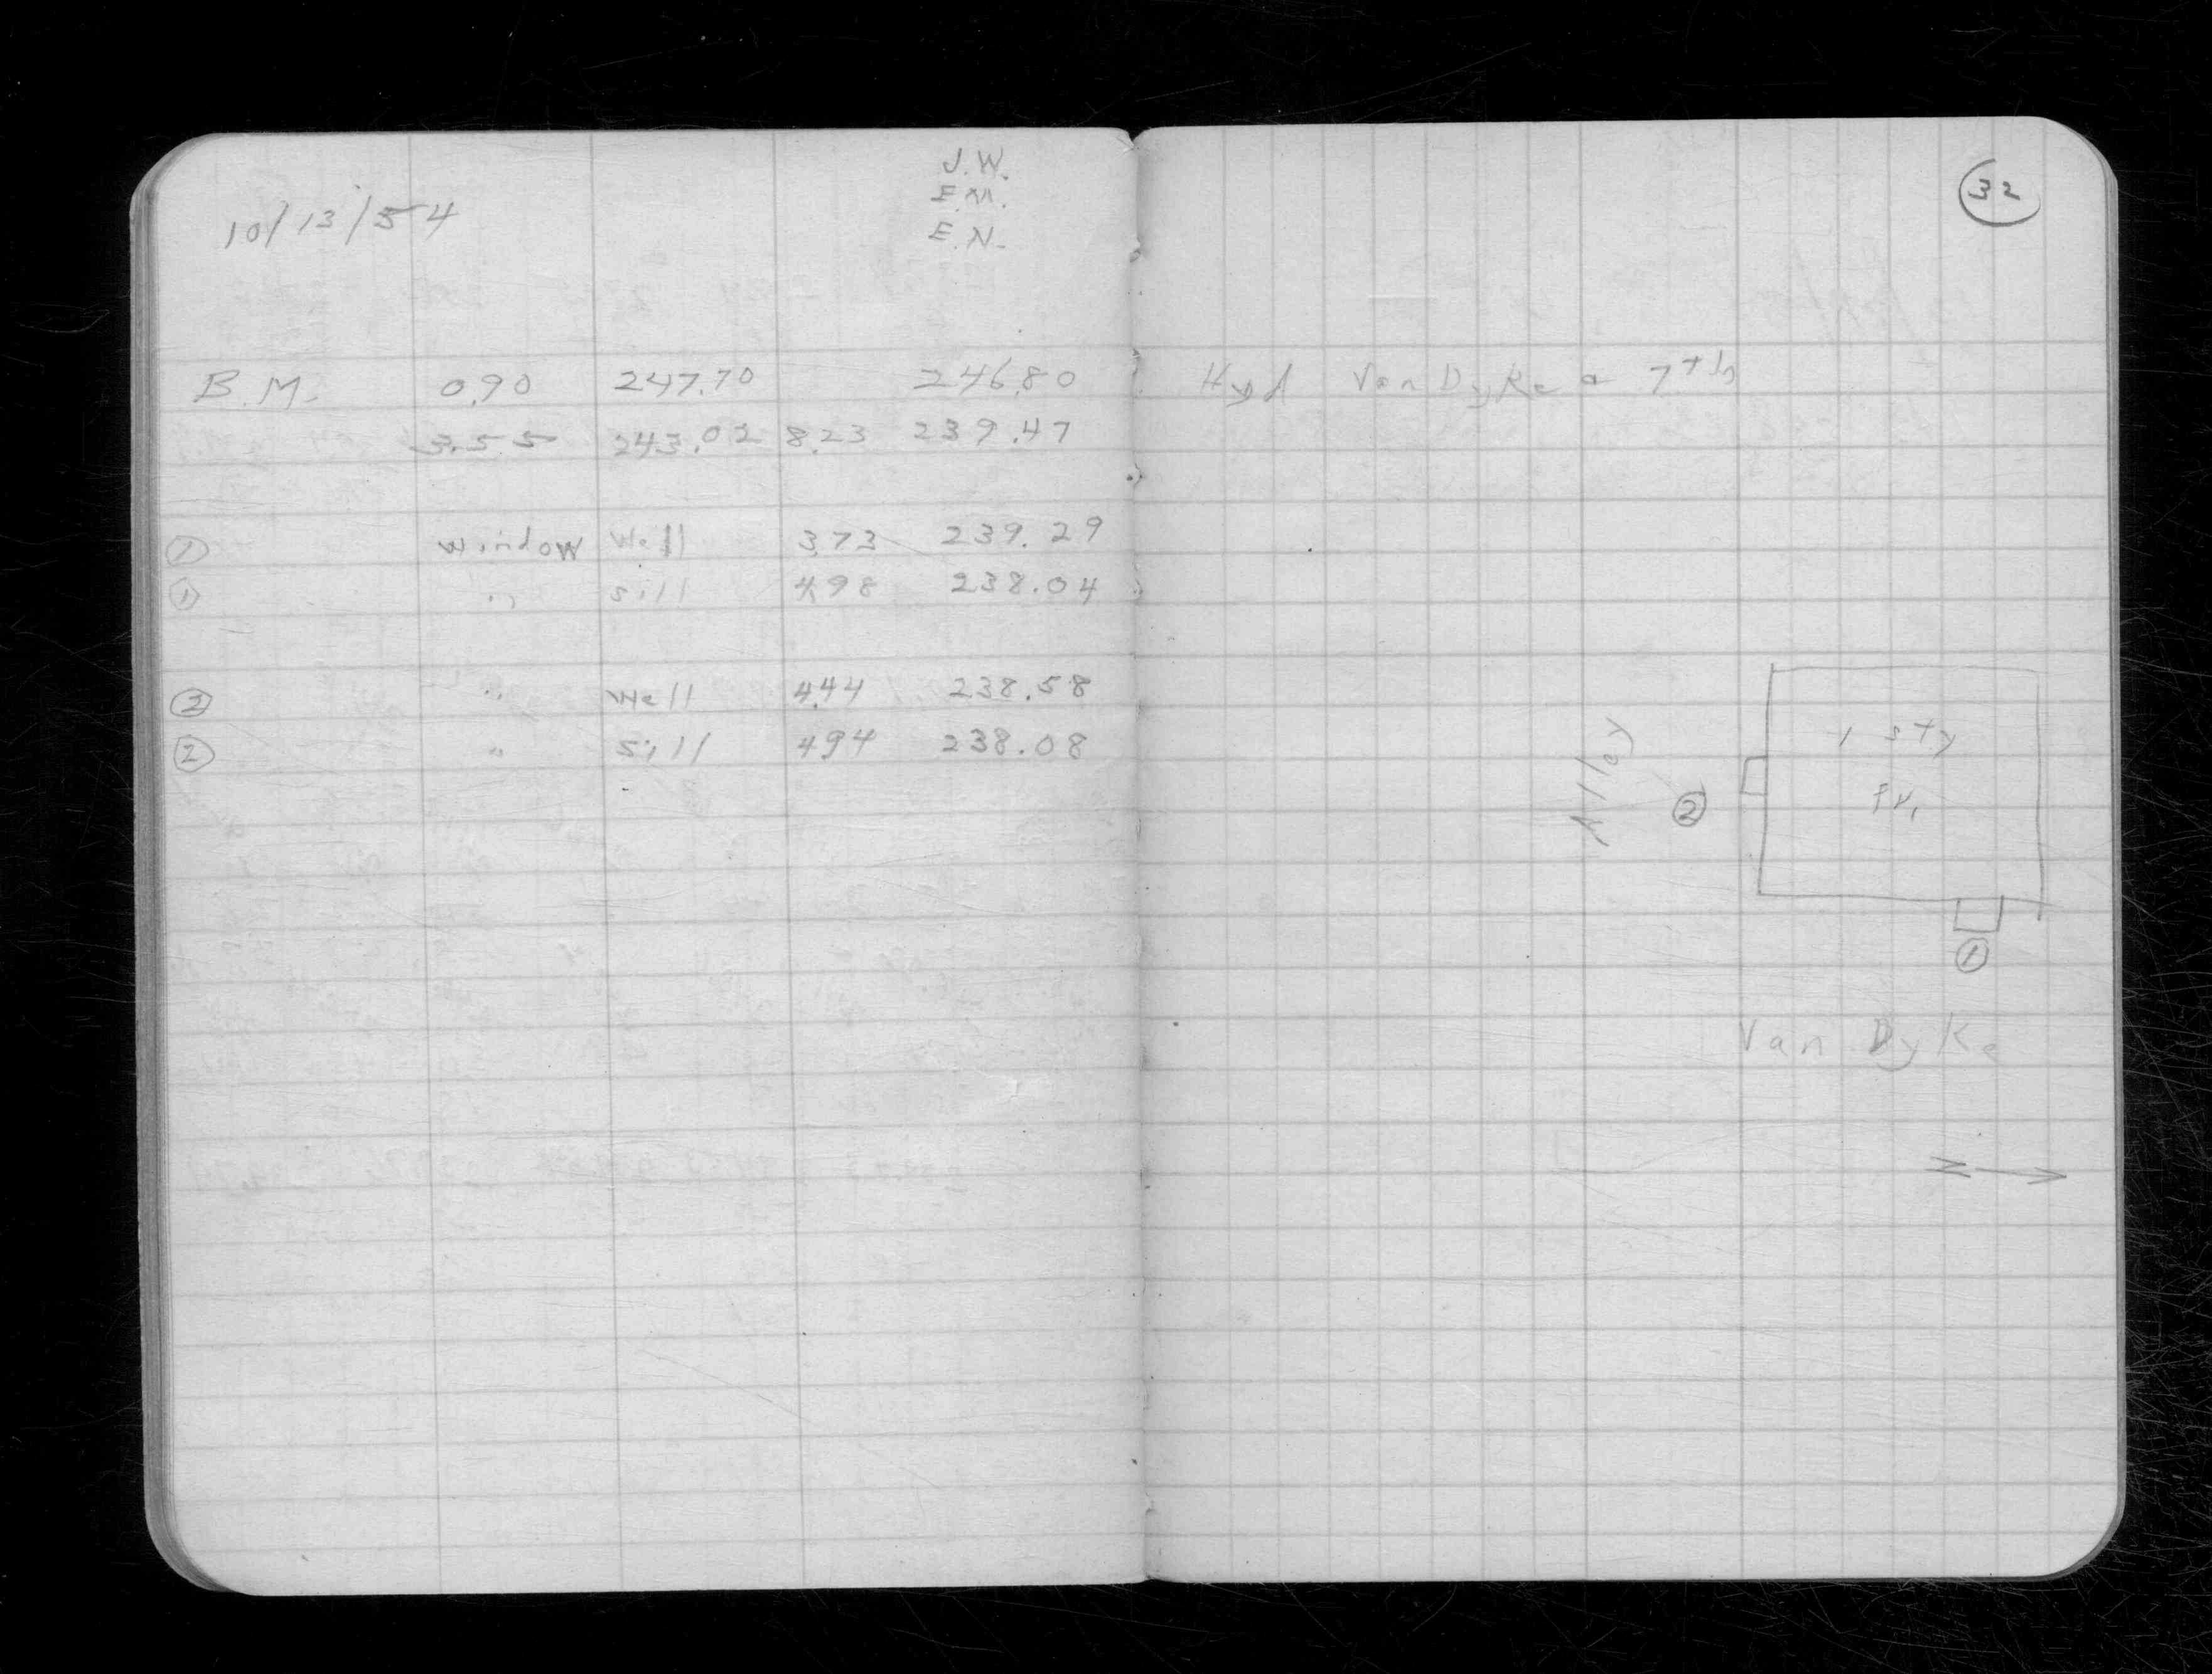 J.W.
E.M.
E.N.
10/13/54
B.M. 0.90 247.70 246.80
3.55 243.02 8.23 239.47
① window well 3.73 239.29
① " sill 4.98 238.04
② " well 4.44 238.58
② " sill 4.94 238.08
32
Hyd Van Dyke a 7th
1 sty
fr.
Alley
②
①
Van Dyke
N